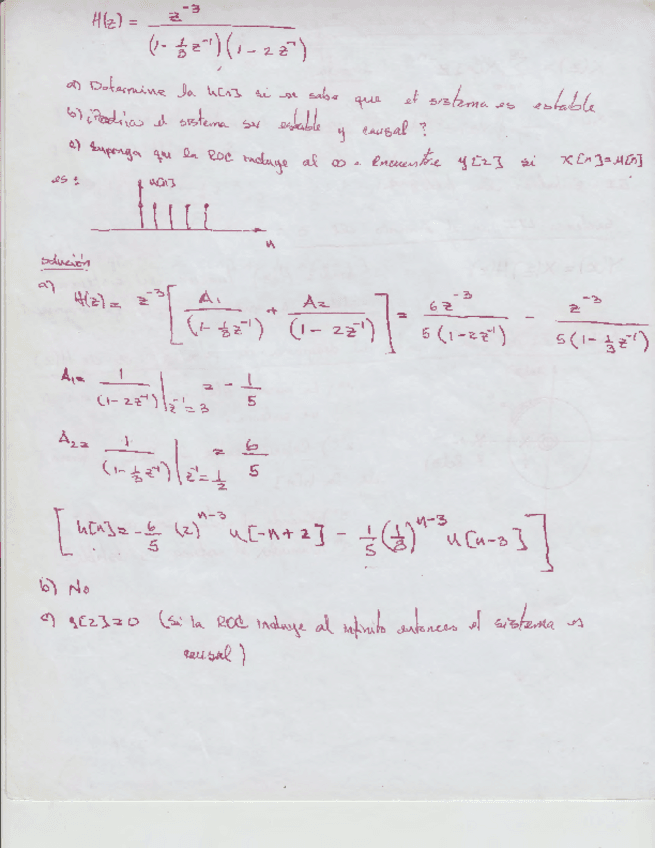 H(z) = z^-3 / (1 - 1/3 z^-1)(1 - 2z^-1)
a) Determine la h[n] si se sabe que el sistema es estable
b) ¿Podría el sistema ser estable y causal?
c) Suponga que la ROC incluye al ∞. Encuentre y[2] si x[n]=u[n]
es:
u[n]
n
solución
a)
H(z) = z^-3 [ A1 / (1 - 1/3 z^-1) + A2 / (1 - 2z^-1) ] = 6z^-3 / 5(1-2z^-1) - z^-3 / 5(1 - 1/3 z^-1)
A1 = 1 / (1-2z^-1) | z^-1 = 3 = - 1/5
A2 = 1 / (1 - 1/3 z^-1) | z^-1 = 1/2 = 6/5
[ h[n] = - 6/5 (2)^n-3 u[-n+2] - 1/5 (1/3)^n-3 u[n-3] ]
b) No
c) y[2]=0 (Si la ROC incluye al infinito entonces el sistema es
causal)